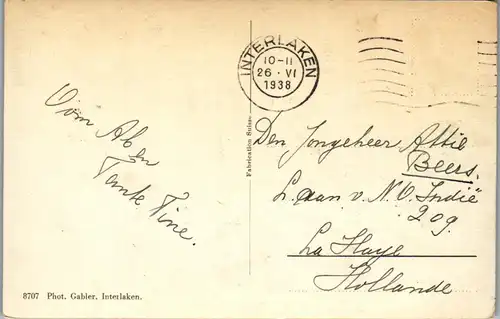 INTERLAKEN
10-11
26 · VI
1938
Oom Ab en
Tante Tine.
Fabrication Suisse
Den Jongeheer Attie
Beers.
L. van N. O. Indië
209.
La Haye
Hollande
8707 Phot. Gabler, Interlaken.